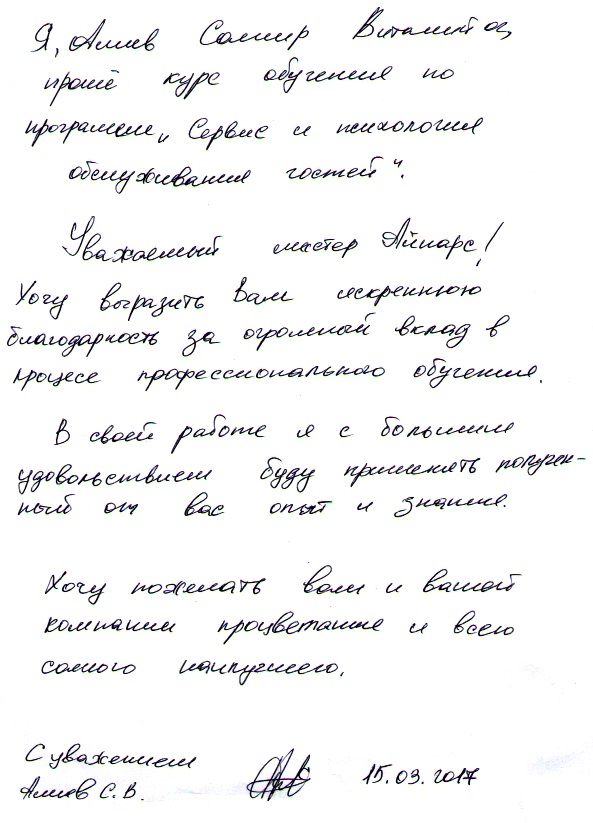 Я, Алиев Самир Витальевич,
прошёл курс обучения по
программе „Сервис и психология
обслуживания гостей".
Уважаемый мастер Айнарс!
Хочу выразить Вам искреннюю
благодарность за огромный вклад в
процесе профессионального обучения.
В своей работе я с большим
удовольствием буду применять получен-
ный от вас опыт и знания.
Хочу пожелать вам и вашей
компании процветание и всего
самого наилучшего.
С уважением
Алиев С. В. 15.03.2017